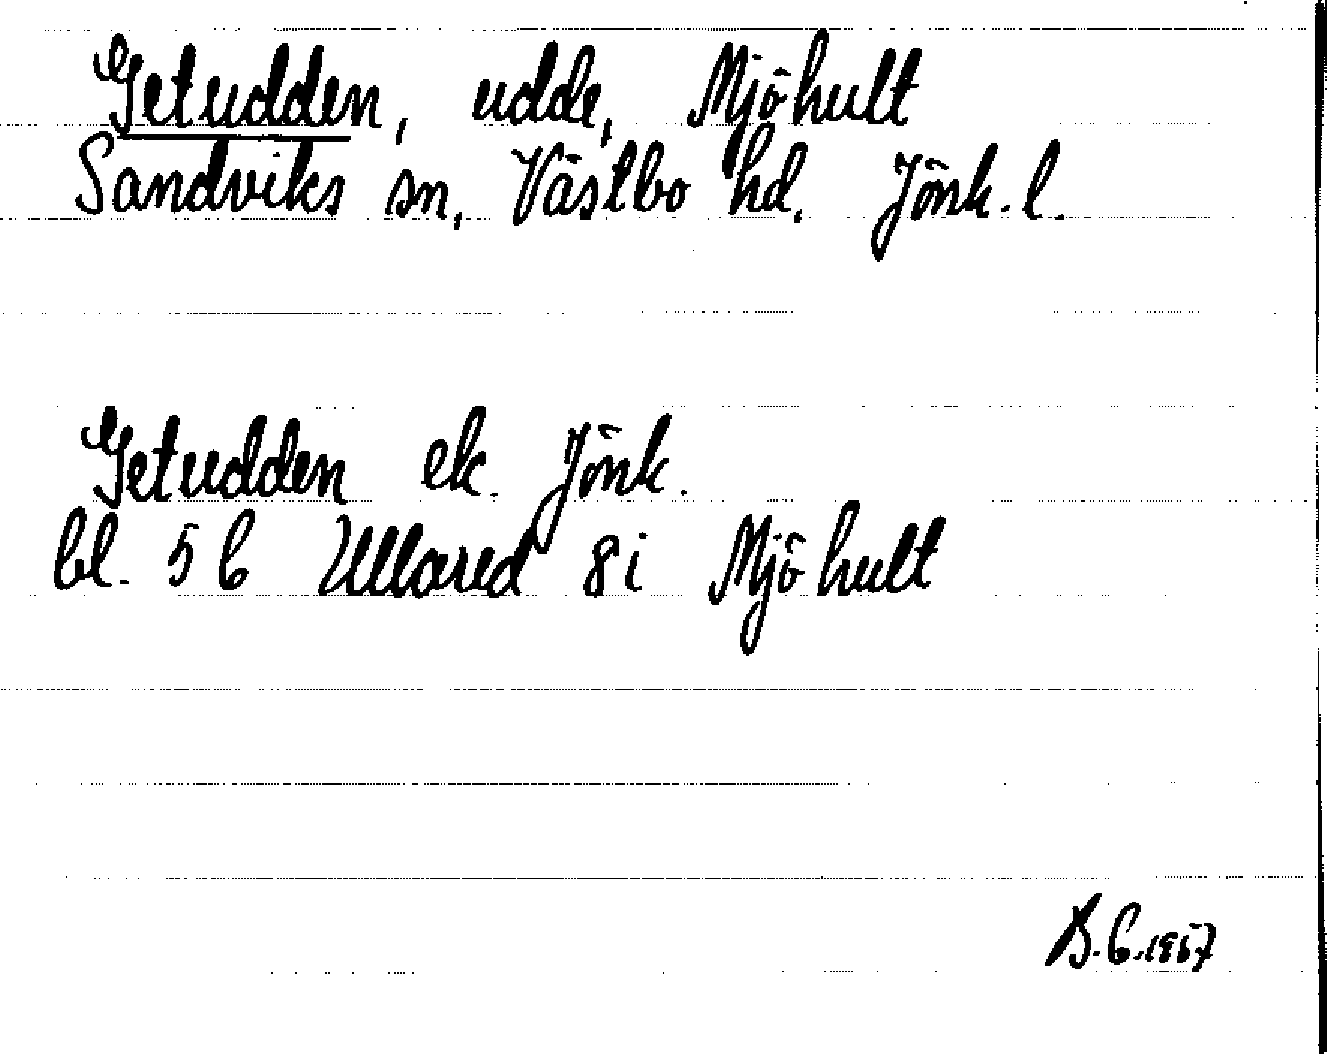 Getudden, udde, Mjöhult
Sandviks sn, Västbo hd, Jönk. l.
Getudden ek. Jönk.
bl. 5 6 Ullared 8 i Mjöhult